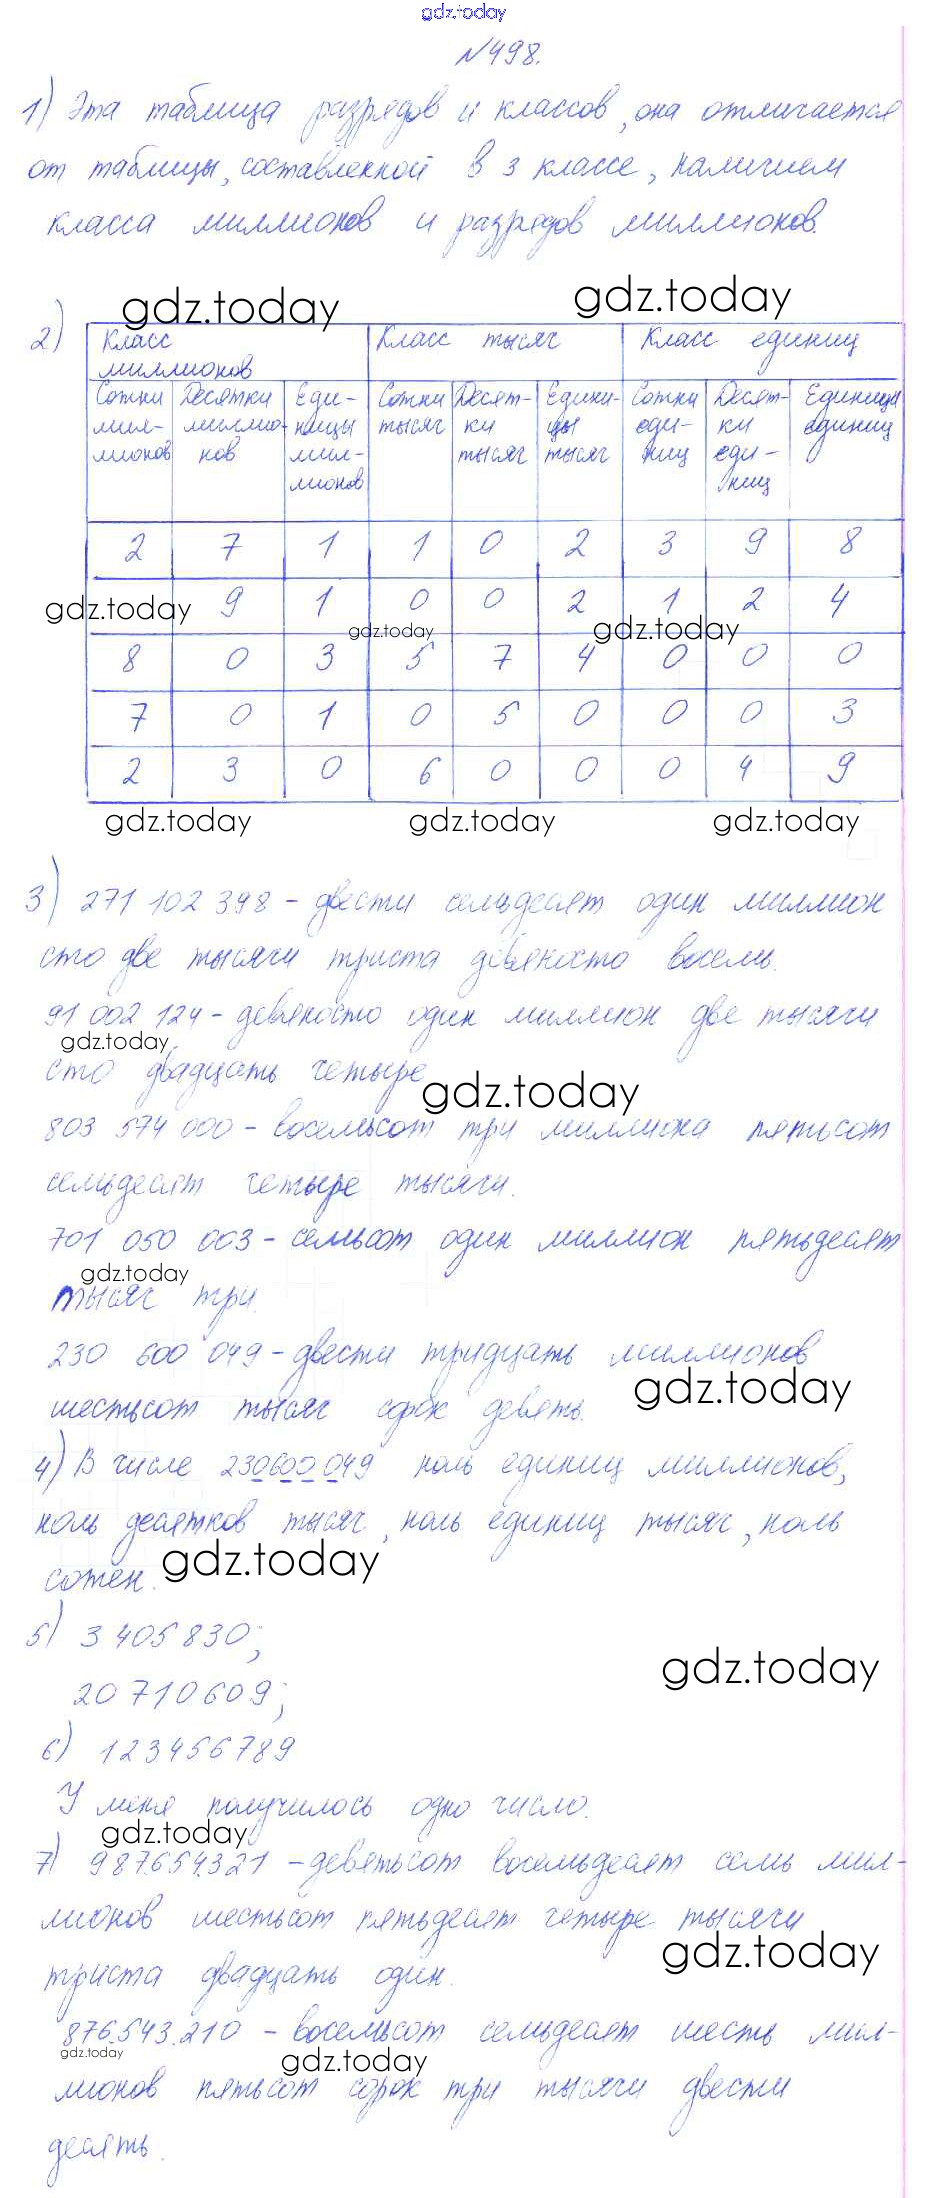 gdz.today
№498.
1) Эта таблица разрядов и классов, она отличается
от таблицы, составленной в 3 классе, наличием
класса миллионов и разрядов миллионов.
gdz.today gdz.today
2) Класс миллионов Класс тысяч Класс единиц
Сотни миллионов Десятки миллионов Единицы миллионов Сотни тысяч Десятки тысяч Единицы тысяч Сотни единиц Десятки единиц Единицы единиц
2 7 1 1 0 2 3 9 8
9 1 0 0 2 1 2 4
gdz.today gdz.today gdz.today
8 0 3 5 7 4 0 0 0
7 0 1 0 5 0 0 0 3
2 3 0 6 0 0 0 4 9
gdz.today gdz.today gdz.today
3) 271 102 398 - двести семьдесят один миллион
сто две тысячи триста девяносто восемь.
91 002 124 - девяносто один миллион две тысячи
gdz.today
сто двадцать четыре
gdz.today
803 574 000 - восемьсот три миллиона пятьсот
семьдесят четыре тысячи.
701 050 003 - семьсот один миллион пятьдесят
gdz.today
тысяч три.
230 600 049 - двести тридцать миллионов
gdz.today
шестьсот тысяч сорок девять.
4) В числе 230600049 ноль единиц миллионов,
ноль десятков тысяч, ноль единиц тысяч, ноль
gdz.today
сотен.
5) 3 405 830;
gdz.today
20 710 609;
6) 123456789
У меня получилось одно число.
gdz.today
7) 987.654.321 - девятьсот восемьдесят семь мил-
лионов шестьсот пятьдесят четыре тысячи
gdz.today
триста двадцать один.
876.543.210 - восемьсот семьдесят шесть мил-
gdz.today gdz.today
лионов пятьсот сорок три тысячи двести
десять.